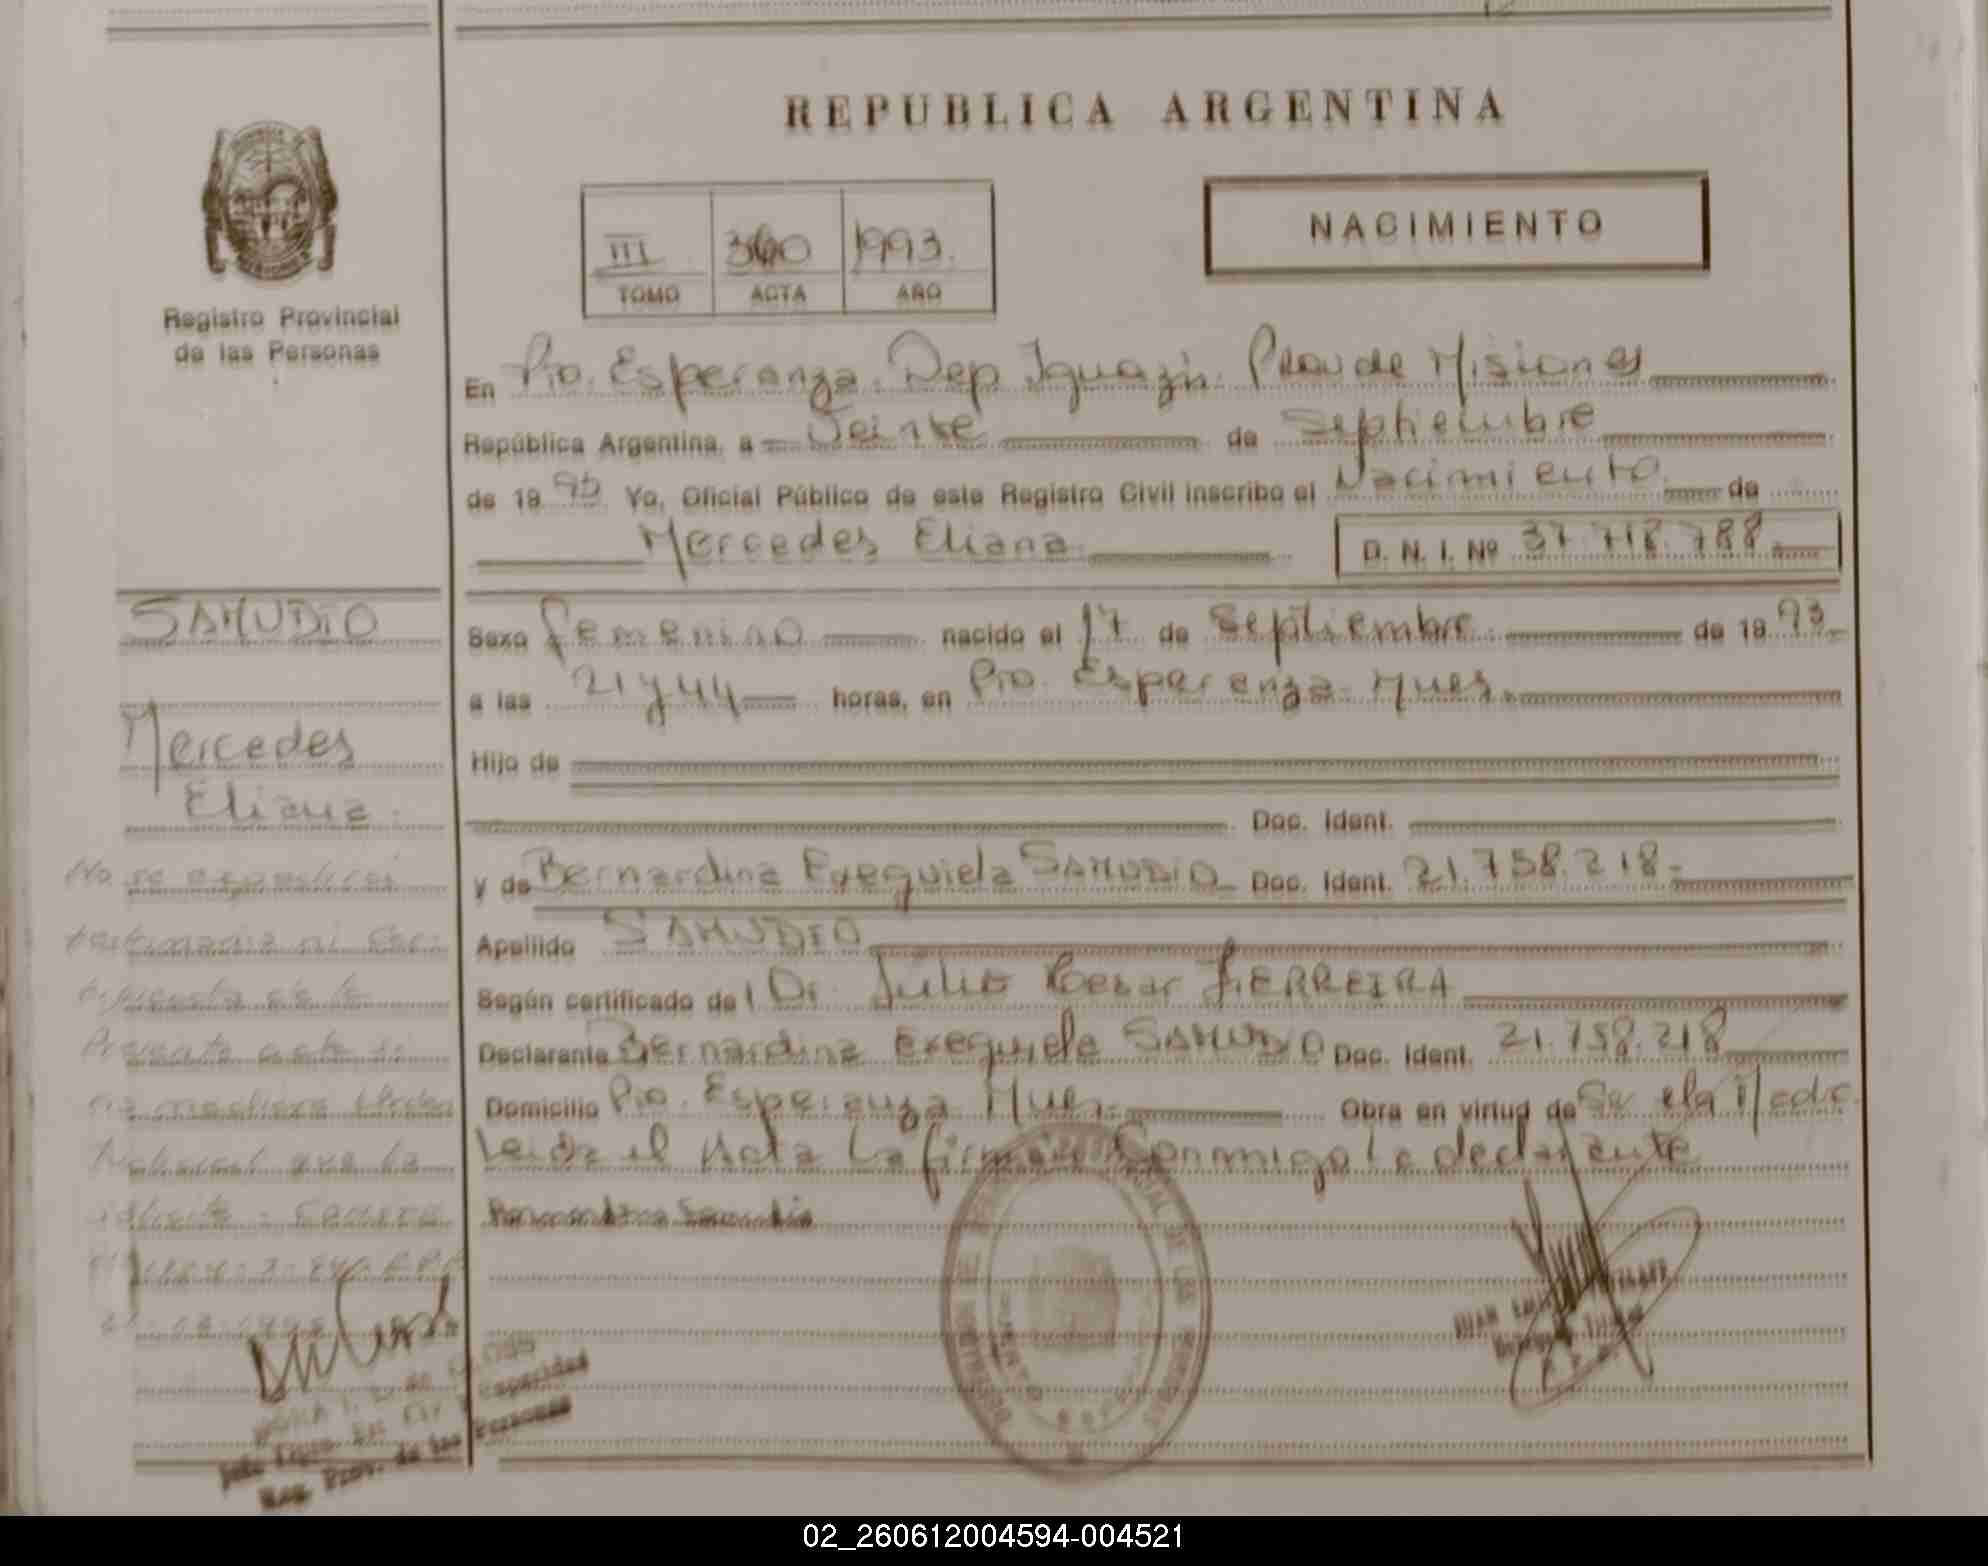 REPUBLICA ARGENTINA
NACIMIENTO
III 360 1993.
TOMO ACTA AÑO
Registro Provincial
de las Personas
En Pto. Esperanza. Dep Iguazú. Prov de Misiones
República Argentina, a Veinte de Septiembre
de 1993 Yo, Oficial Público de este Registro Civil inscribo el Nacimiento de
Mercedes Eliana D. N. I. Nº 37.718.788
SAMUDIO
Mercedes
Eliana.
Sexo Femenino nacido el 17 de Septiembre de 1993
a las 21 y 44 horas, en Pto. Esperanza Mnes.
Hijo de
Doc. Ident.
y de Bernardina Exequiela SAMUDIO Doc. Ident. 21.758.218.
Apellido SAMUDIO
Según certificado de l Dr. Julio Cesar FERREIRA
Declarante Bernardina Exequiela SAMUDIO Doc. Ident. 21.758.218
Domicilio Pto. Esperanza Mnes. Obra en virtud de Se ela Madre
Leida el Acta La firma Conmigo la declarante
Bernardina Samudio
No se expedirá
testimonio ni
de la
Presente acta si
no mediera Orden
que lo
solicite
Reg. Prov. de las Personas
02_260612004594-004521